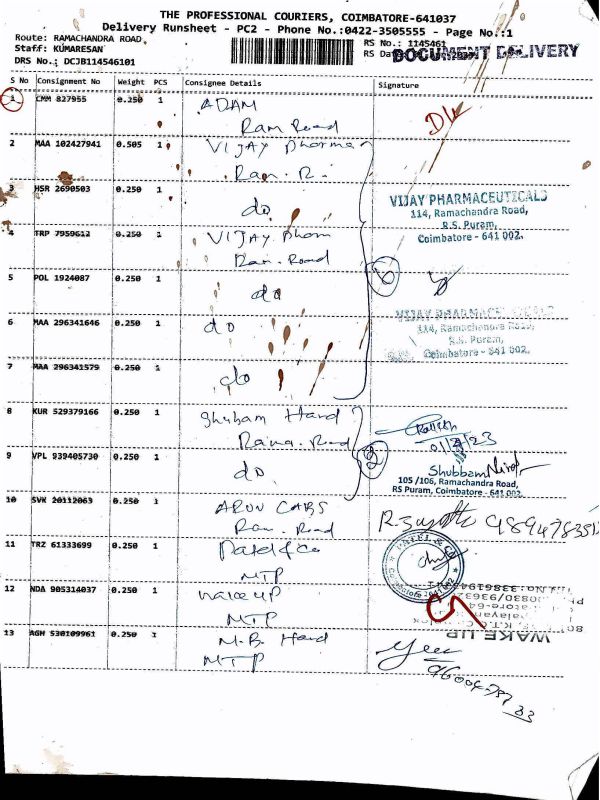 THE PROFESSIONAL COURIERS, COIMBATORE-641037
Delivery Runsheet - PC2 - Phone No.:0422-3505555 - Page No.:1
Route: RAMACHANDRA ROAD,
Staff: KUMARESAN
DRS No.: DCJB114546101
RS No.: 1145461
RS Da
DOCUMENT DELIVERY
S No Consignment No Weight PCS Consignee Details Signature
1 CMM 827955 0.250 1 ADAM
Ram Road
2 MAA 102427941 0.505 1 VIJAY Pharma
Ram. R.
3 HSR 2690503 0.250 1 do
VIJAY PHARMACEUTICALS
114, Ramachandra Road,
R.S. Puram,
Coimbatore - 641 002.
4 TRP 7959612 0.250 1 VIJAY Pham
Ram. Road
6
5 POL 1924087 0.250 1 do
6 MAA 296341646 0.250 1 do
VIJAY PHARMACEUTICALS
114, Ramachandra Road,
R.S. Puram,
Coimbatore - 641 002.
7 MAA 296341579 0.250 1 do
8 KUR 529379166 0.250 1 Shubham Hard
Rama. Road
2
9 VPL 939405730 0.250 1 do
Shubbam
105 /106, Ramachandra Road,
RS Puram, Coimbatore - 641 002.
10 SVK 20112063 0.250 1 ARUN CARS
Ram. Road
11 TRZ 61333699 0.250 1 Patel & Co
MTP
PATEL & CO
12 NDA 905314037 0.250 1 wake up
MTP
WAKE UP
13 AGH 530109961 0.250 1 M.B. Hard
MTP